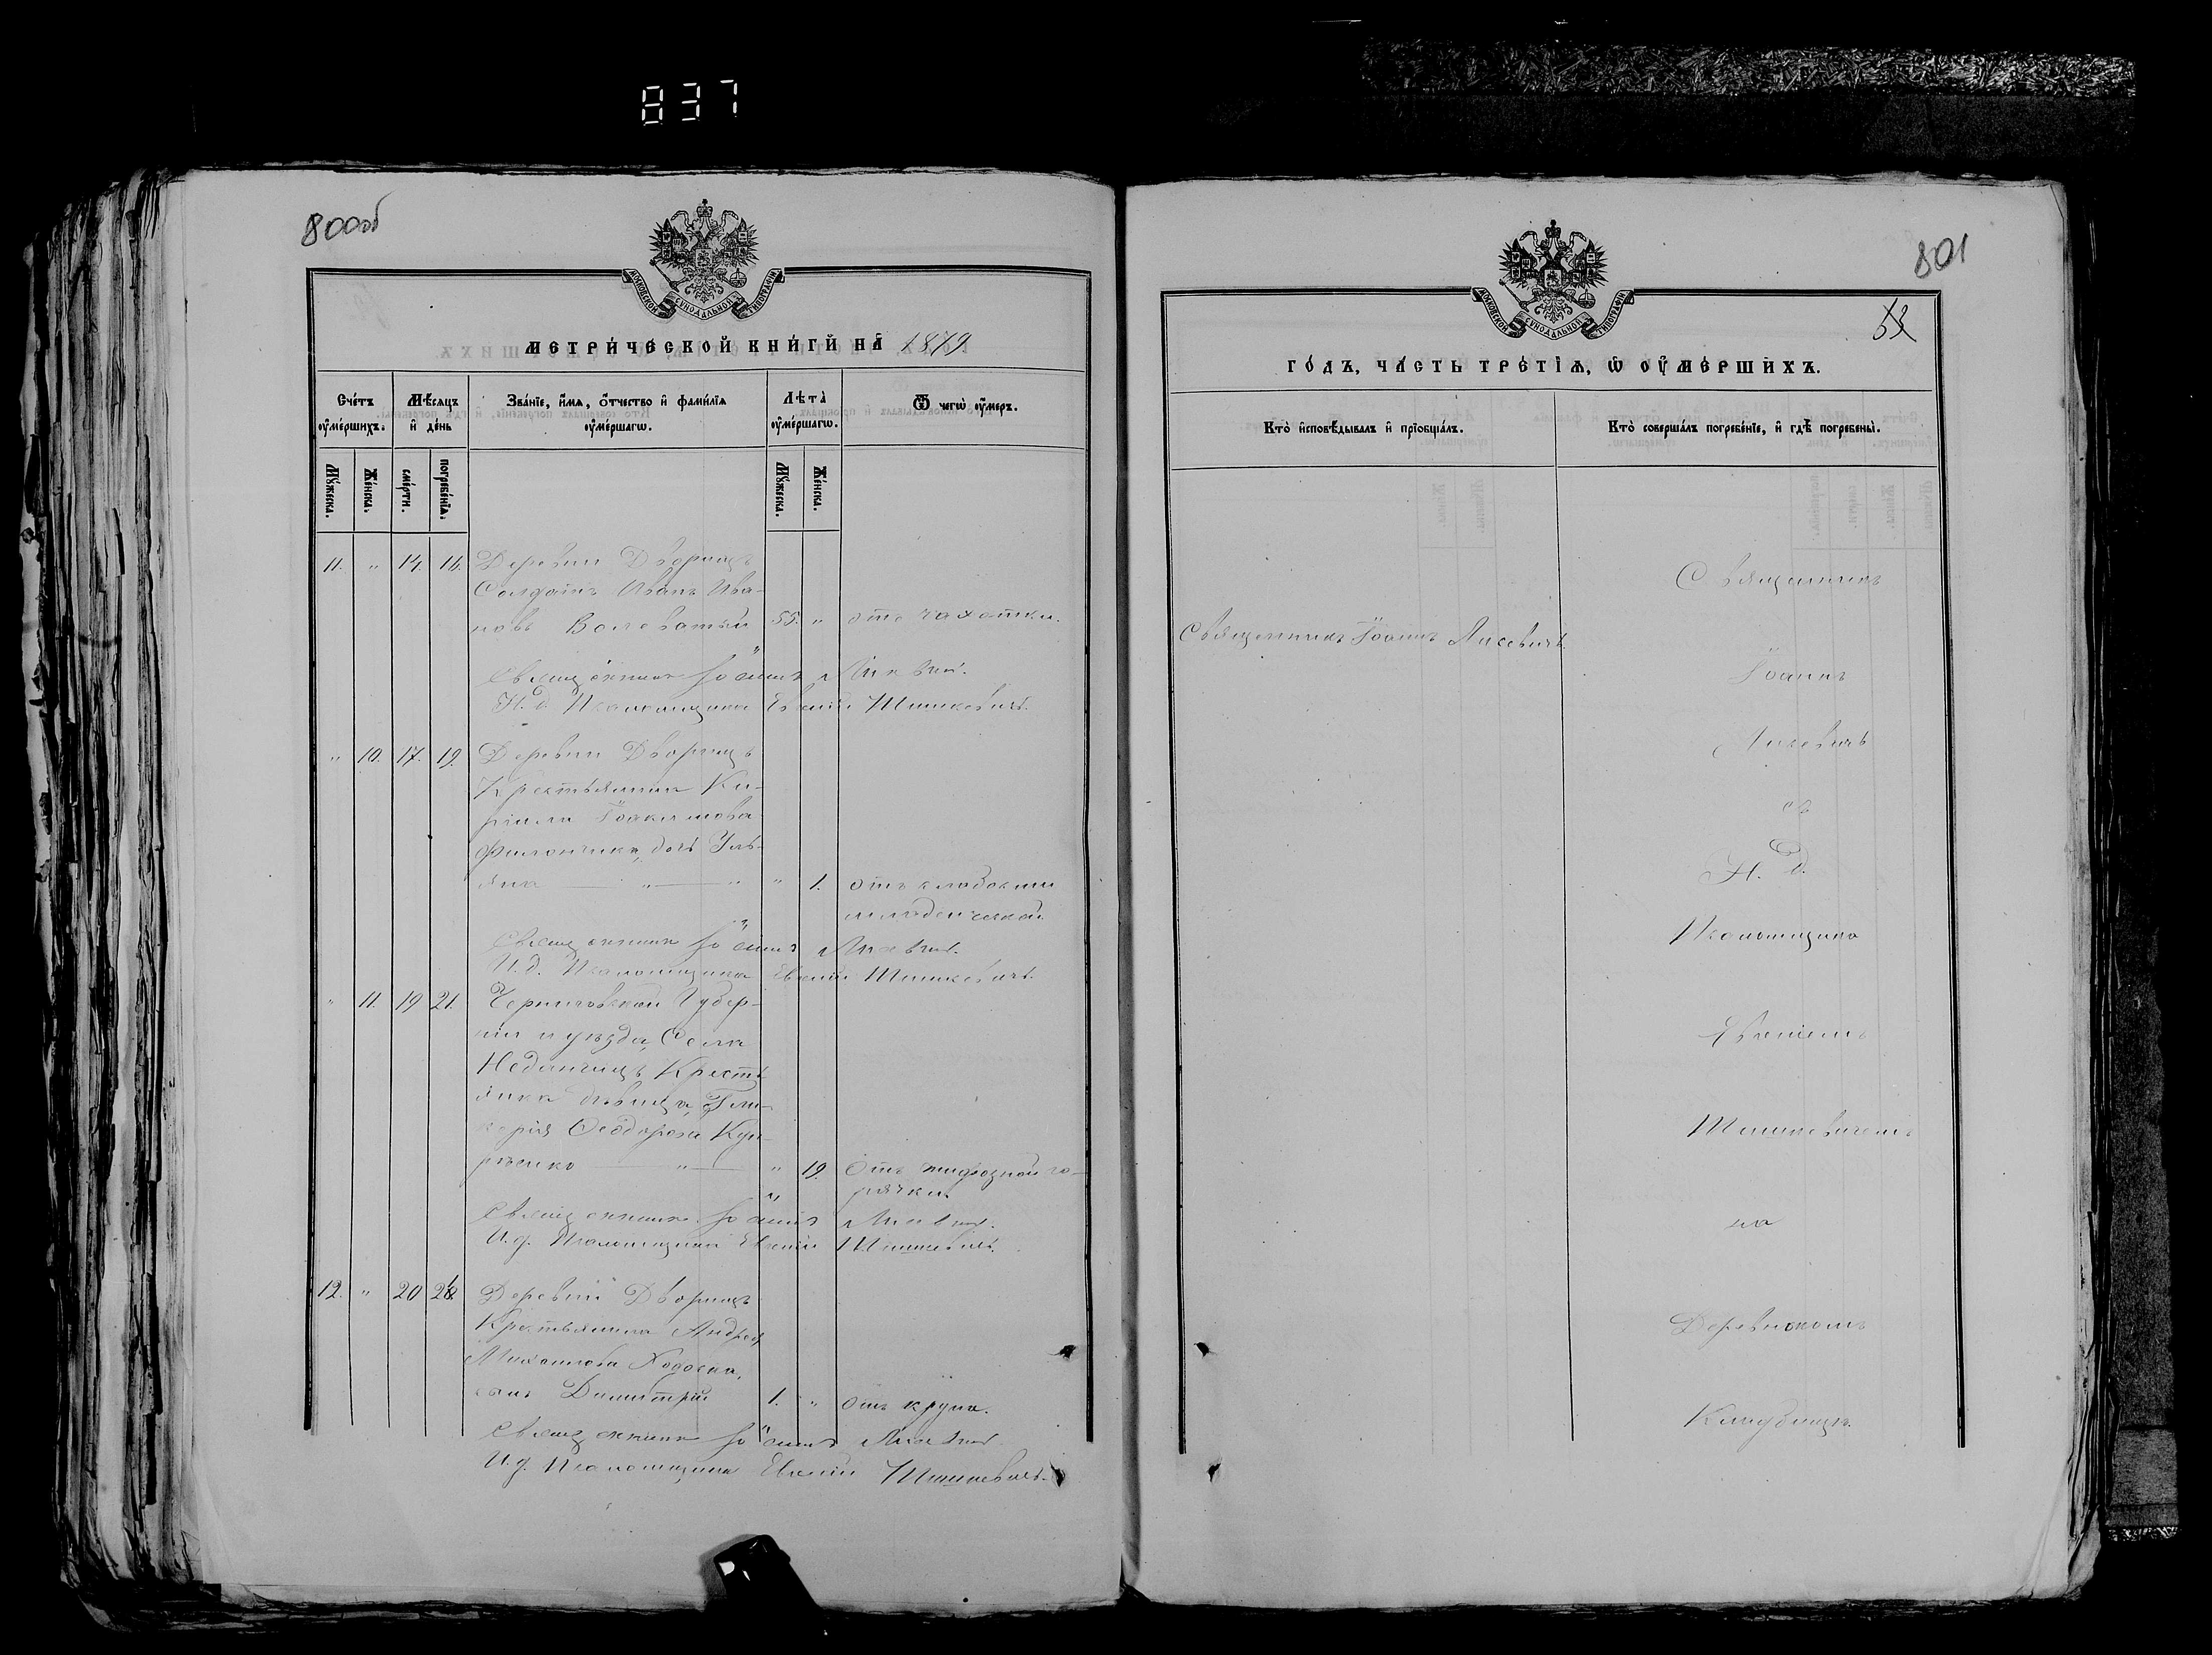 837
800об
МОСКОВСКОЙ СУНОДАЛЬНОЙ ТИПОГРАФІИ
МЕТРИ́ЧЕСКОЙ КНИ́ГИ НА̀ 1879
Сче́тъ ᲂу҆ме́ршихъ.
Мѣ́сяцъ и҆ де́нь
Зва́нїе, и҆́мя, ѻ҆́тчество и҆ фами́лїя ᲂу҆ме́ршагѡ.
Лѣта̀ ᲂу҆ме́ршагѡ.
Ѿ чегѡ̀ ᲂу҆́меръ.
Мꙋ́жеска.
Же́нска.
сме́рти.
погребе́нїѧ.
Мꙋ́жеска.
Же́нска.
11. " 14. 16. Деревни Дворищъ
Солдатъ Иванъ Ива-
новъ Волеватый 55. " отъ чахотки.
Священникъ Іоаннъ Лисевичъ.
И. д. Псаломщика Евгеній Шишкевичъ.
" 10. 17. 19. Деревни Дворищъ
Крестьянина Ки-
рилла Іоакимова
дочь Уль-
яна " " " 1. отъ слабости
младенческой.
Священникъ Іоаннъ Лисевичъ.
И. д. Псаломщика Евгеній Шишкевичъ.
" 11. 19 21. Черниговской Губер-
ніи и уѣзда, Села
Неданчичъ Кресть-
янка дѣвица, Гли-
керія Ѳеодорова
" " 19. Отъ тифозной го-
рячки.
Священникъ Іоаннъ Лисевичъ.
И. д. Псаломщика Евгеній Шишкевичъ.
12. " 20 Деревни Дворищъ
Крестьянина Андрея
Михаилова
сынъ Димитрій 1. " отъ крупа.
Священникъ Іоаннъ Лисевичъ.
И. д. Псаломщика Евгеній Шишкевичъ.
801
МОСКОВСКОЙ СУНОДАЛЬНОЙ ТИПОГРАФІИ
ГО́ДЪ, ЧА́СТЬ ТРЕ́ТЇѦ, Ѽ ОУ҆МЕ́РШИХЪ.
Кто̀ и҆сповѣ́дывалъ и҆ прїобща́лъ.
Кто̀ соверша́лъ погребе́нїе, и҆ гдѣ̀ погребены̀.
Священникъ Іоаннъ Лисевичъ.
Священникъ
Іоаннъ
Лисевичъ
съ
И. д.
Псаломщика
Евгеніемъ
Шишкевичемъ
на
Деревнскомъ
Кладбищѣ.